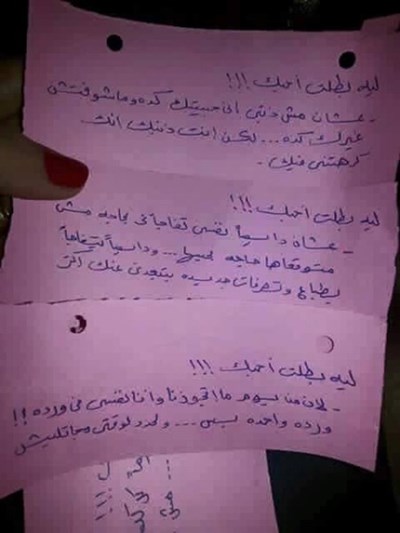 ليه بطلت أحبك !!!
- عشان مش ذنبى انى حبيتك كده وماشوفتش
غيرك كده ... لكن انت ذنبك انك
كرهتنى فيك -
ليه بطلت أحبك !!!
- عشان دايماً نفسى تفاجأنى بحاجه مش
متوقعاها حاجه بحبها ... ودايماً بتفاجأ
بطباع وتصرفات جديده بتبعدنى عنك أكتر
ليه بطلت أحبك !!!
- لان من يوم ما اتجوزنا وانا نفسى فى ورده !!
ورده واحده بس ... ولحد دلوقتى مجاتليش